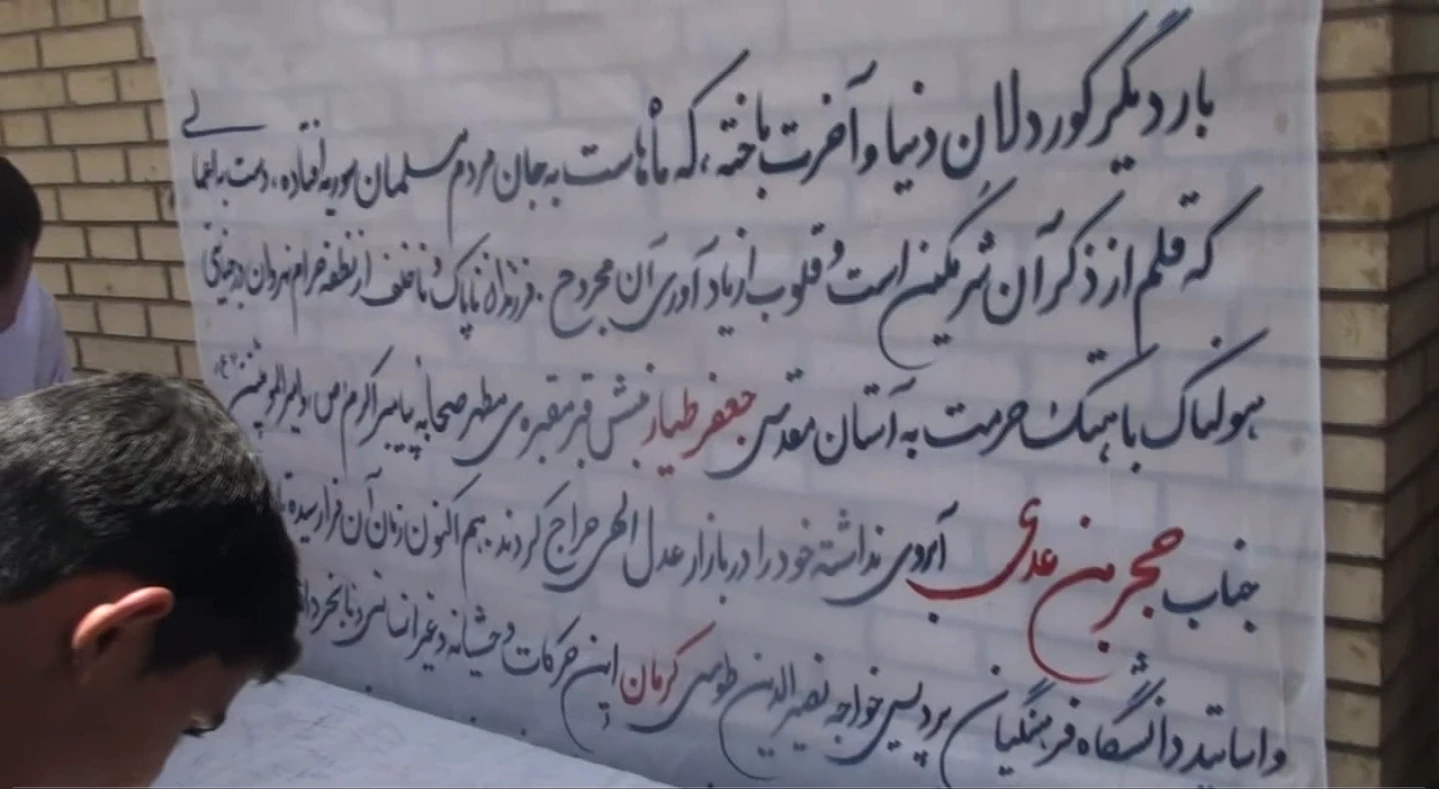 بار دیگر کوردلان دنیا و آخرت باخته، که ماهاست به جان مردم مسلمان سوریه افتاده، دست به اعمالی
که قلم از ذکر آن شرمگین است و قلوب از یادآوری آن مجروح. فرزندان ناپاک و ناخلف از نطفه حرام نهروان در جنایتی
هولناک با هتک حرمت به آستان مقدس جعفر طیار نبش قبر مقبره‌ی مطهر صحابه پیامبر اکرم (ص) و امیرالمومنین (ع)
جناب حجر بن عدی آبروی نداشته خود را در بازار عدل الهی حراج کردند. هم اکنون زمان آن فرا رسیده
و اساتید دانشگاه فرهنگیان پردیس خواجه نصیرالدین طوسی کرمان این حرکات وحشیانه و غیر انسانی و نابخردا